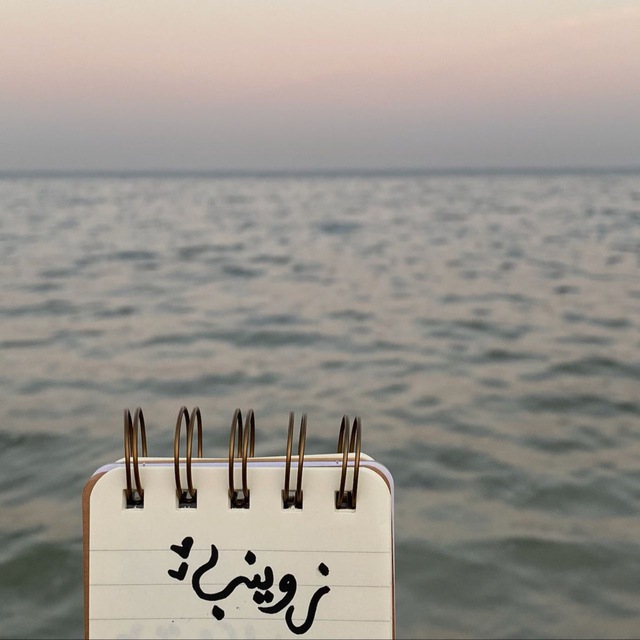 زوينب